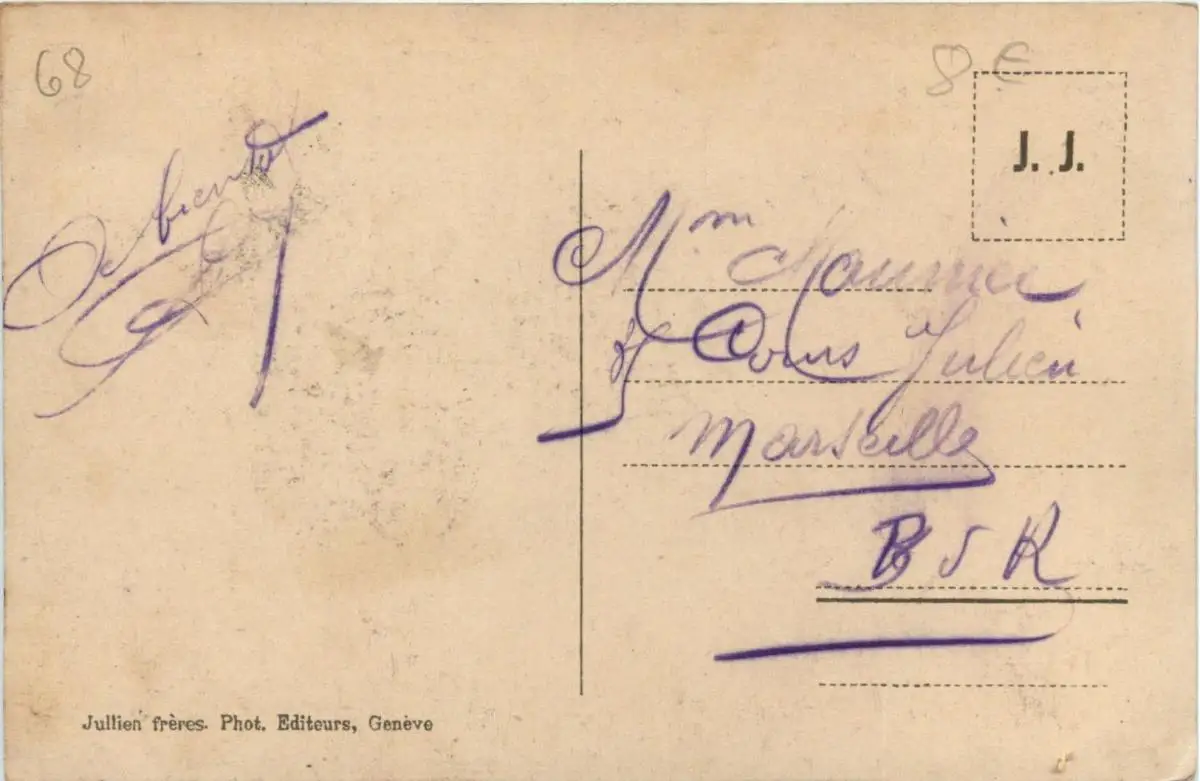 68
8 €
J. J.
A bientôt
Mme
Cours Julien
Marseille
B d R
Jullien frères. Phot. Editeurs, Genève